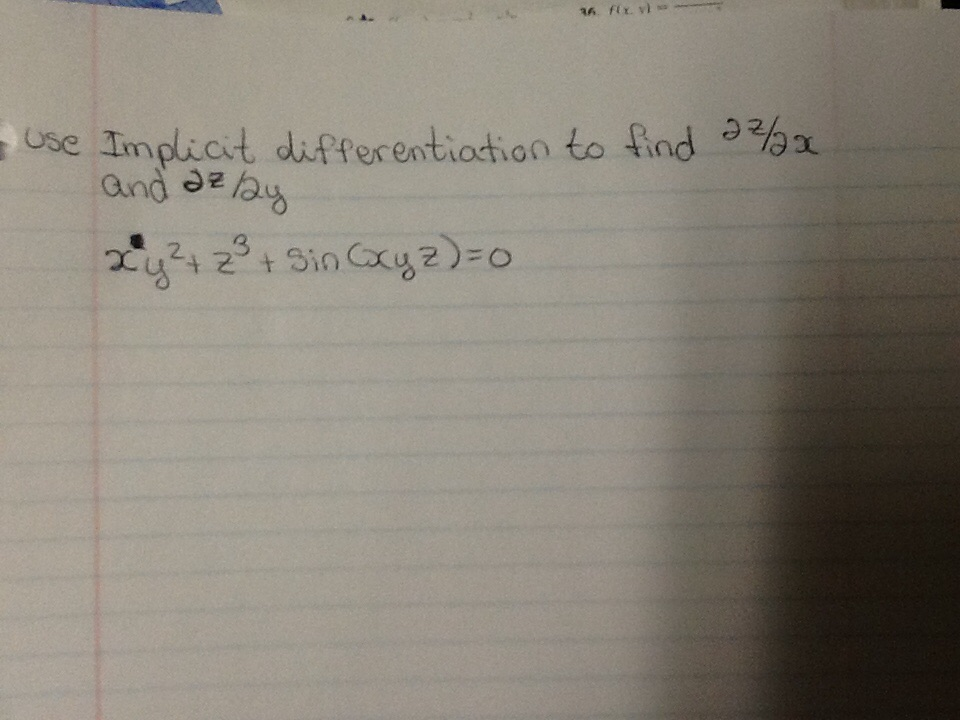 36. f(x, y) =
use Implicit differentiation to find ∂z/∂x
and ∂z/∂y
xy²+ z³ + sin(xyz)=0